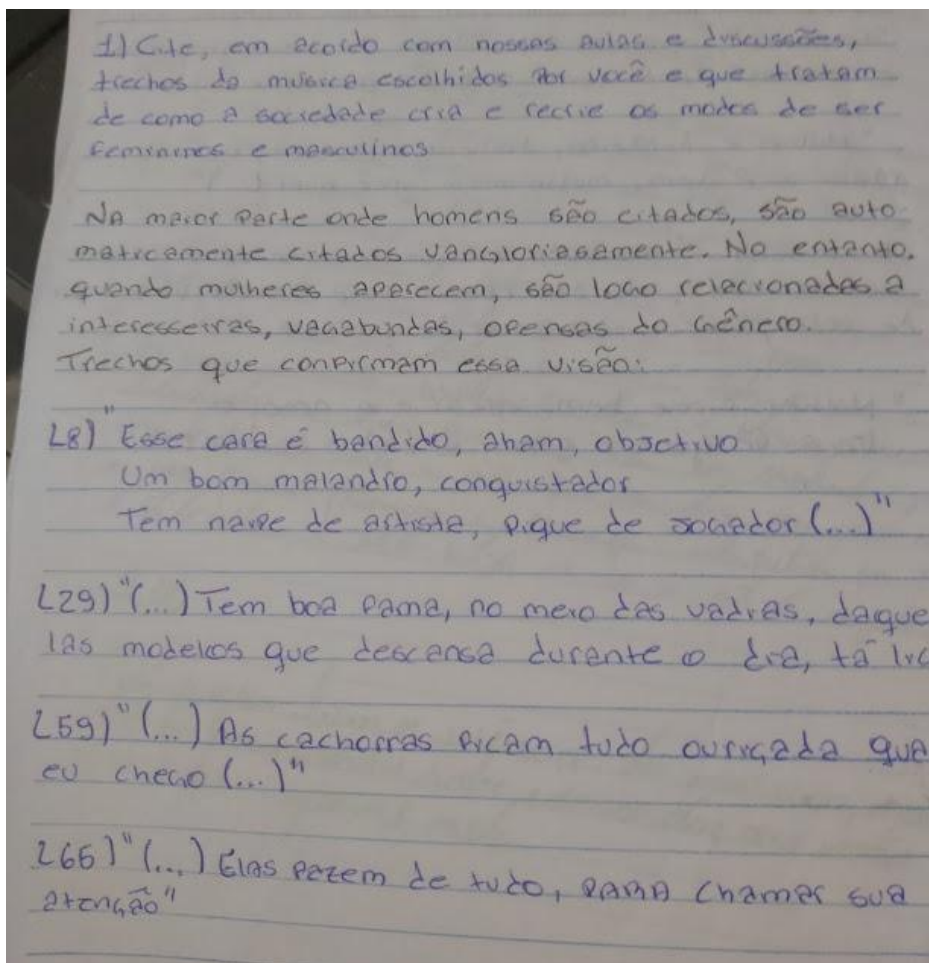 1) Cite, em acordo com nossas aulas e discussões,
trechos da música escolhidos por você e que tratam
de como a sociedade cria e recrie os modos de ser
femininos e masculinos
Na maior parte onde homens são citados, são auto
maticamente citados vangloriasamente. No entanto,
quando mulheres aparecem, são logo relacionadas a
interesseiras, vagabundas, ofensas do gênero.
Trechos que confirmam essa visão:
L8) "Esse cara é bandido, aham, objetivo
Um bom malandro, conquistador
Tem naipe de artista, pique de jogador (...)"
L29) "(...) Tem boa fama, no meio das vadias, daque
las modelos que descansa durante o dia, tá
L59) "(...) As cachorras ficam tudo ouriçada que
eu chego (...)"
L66) "(...) Elas fazem de tudo, para chamar sua
atenção"